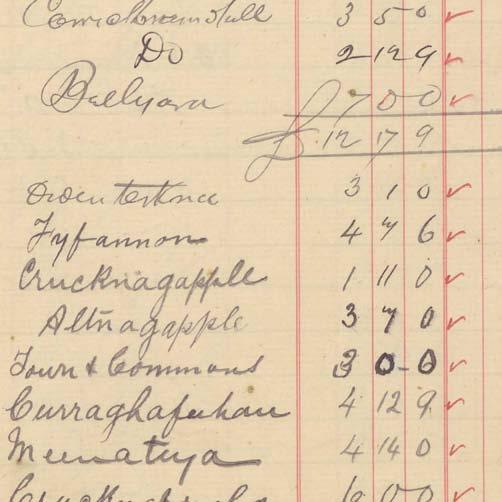 3 5 0 ✓
Do 2 12 9 ✓
Ballyara 7 0 0 ✓
£ 12 17 9
3 1 0 ✓
Tyfannon 4 7 6 ✓
Crucknagapple 1 11 0 ✓
Altnagapple 3 7 0 ✓
Town & Commons 3 0-0 ✓
Curraghafeehan 4 12 9 ✓
4 14 0 ✓
0 0 ✓